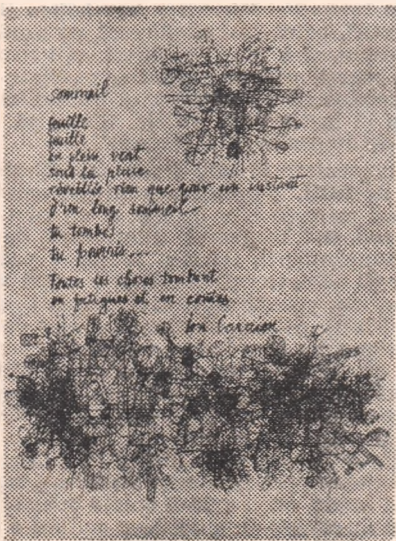 sommeil
feuille
feuille
en plein vent
sous la pluie
réveillée rien que pour un instant
d'un long sommeil
tu tombes
tu pourris...
Toutes les choses tombent
en fatigues et en